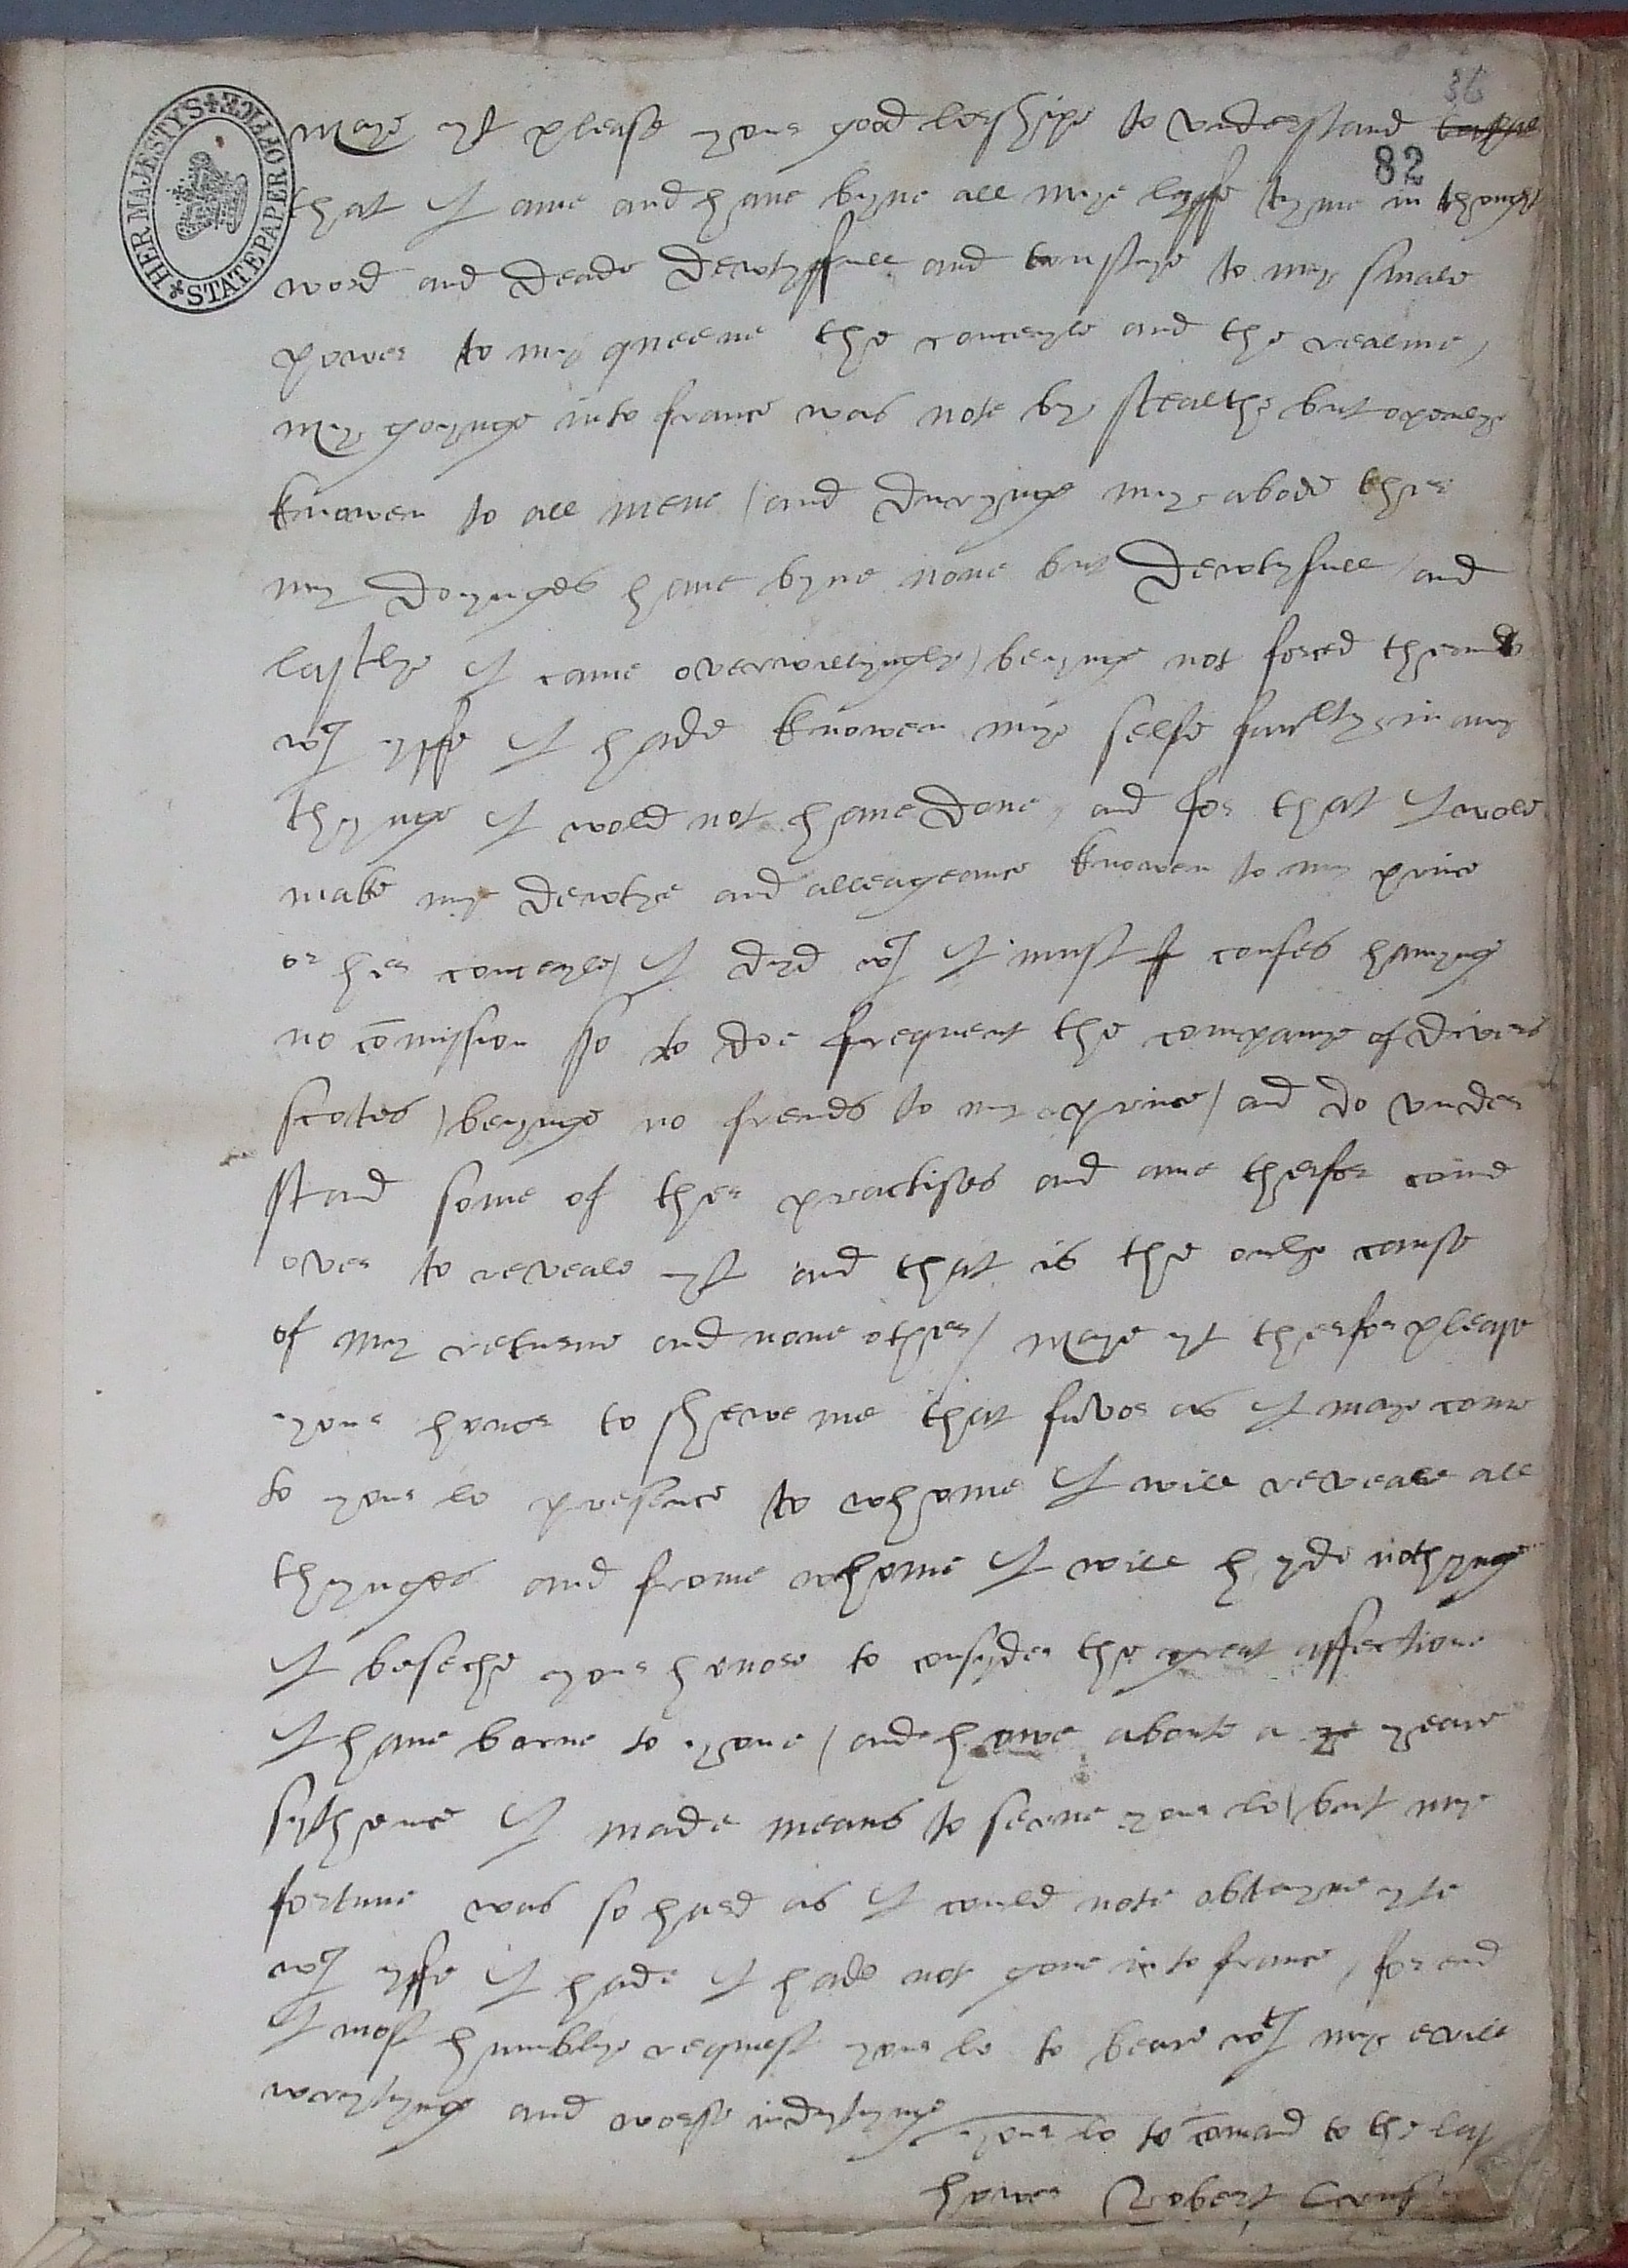 HER MAJESTY'S STATE PAPER OFFICE
36
82
maye yt please your good lorshipe to understand
that I ame and have byne all mye lyffe tyme in thought
word and deade dewtyfull and to my smale
power to my queene the conceyle and the realme,
my goynge into france was note by stealthe but openlye
knowen to all mene / and durynge my abode ther
my doynges have byne none but dewtyfull / and
lastlye I came overwillyngly / beynge not forced therunto
wch yffe I hade knowen mye selfe faultye in any
thynge I wold not have done, and for that I wold
make mye dewtye and alleageance knowen to my prince
or her conceyle / I dyd wch I must confes havynge
no comission so to doe frequent the companye of divers
scotes / beynge no frends to my prince / and do under
stand some of ther practises and ame therfor come
over to reveale yt and that is the onlye cause
of my returne and none other / maye yt therfor please
your honor to shewe me that favor as I maye come
to your lo presence to whome I will reveale all
thynges and frome whome I will hyde nothynge
I beseche your honore to consyder the great affectione
I have borne to youe / and howe aboute a yeare
sythence I made means to serve your lo / but mye
fortune was so hard as I could note obteyne yte
wch yffe I hade I hade not gone into france, for end
I most humblye request your lo to beare wth mye evill
wrytynge and worsse indytynge
your lo to comand to the las
hower Robert